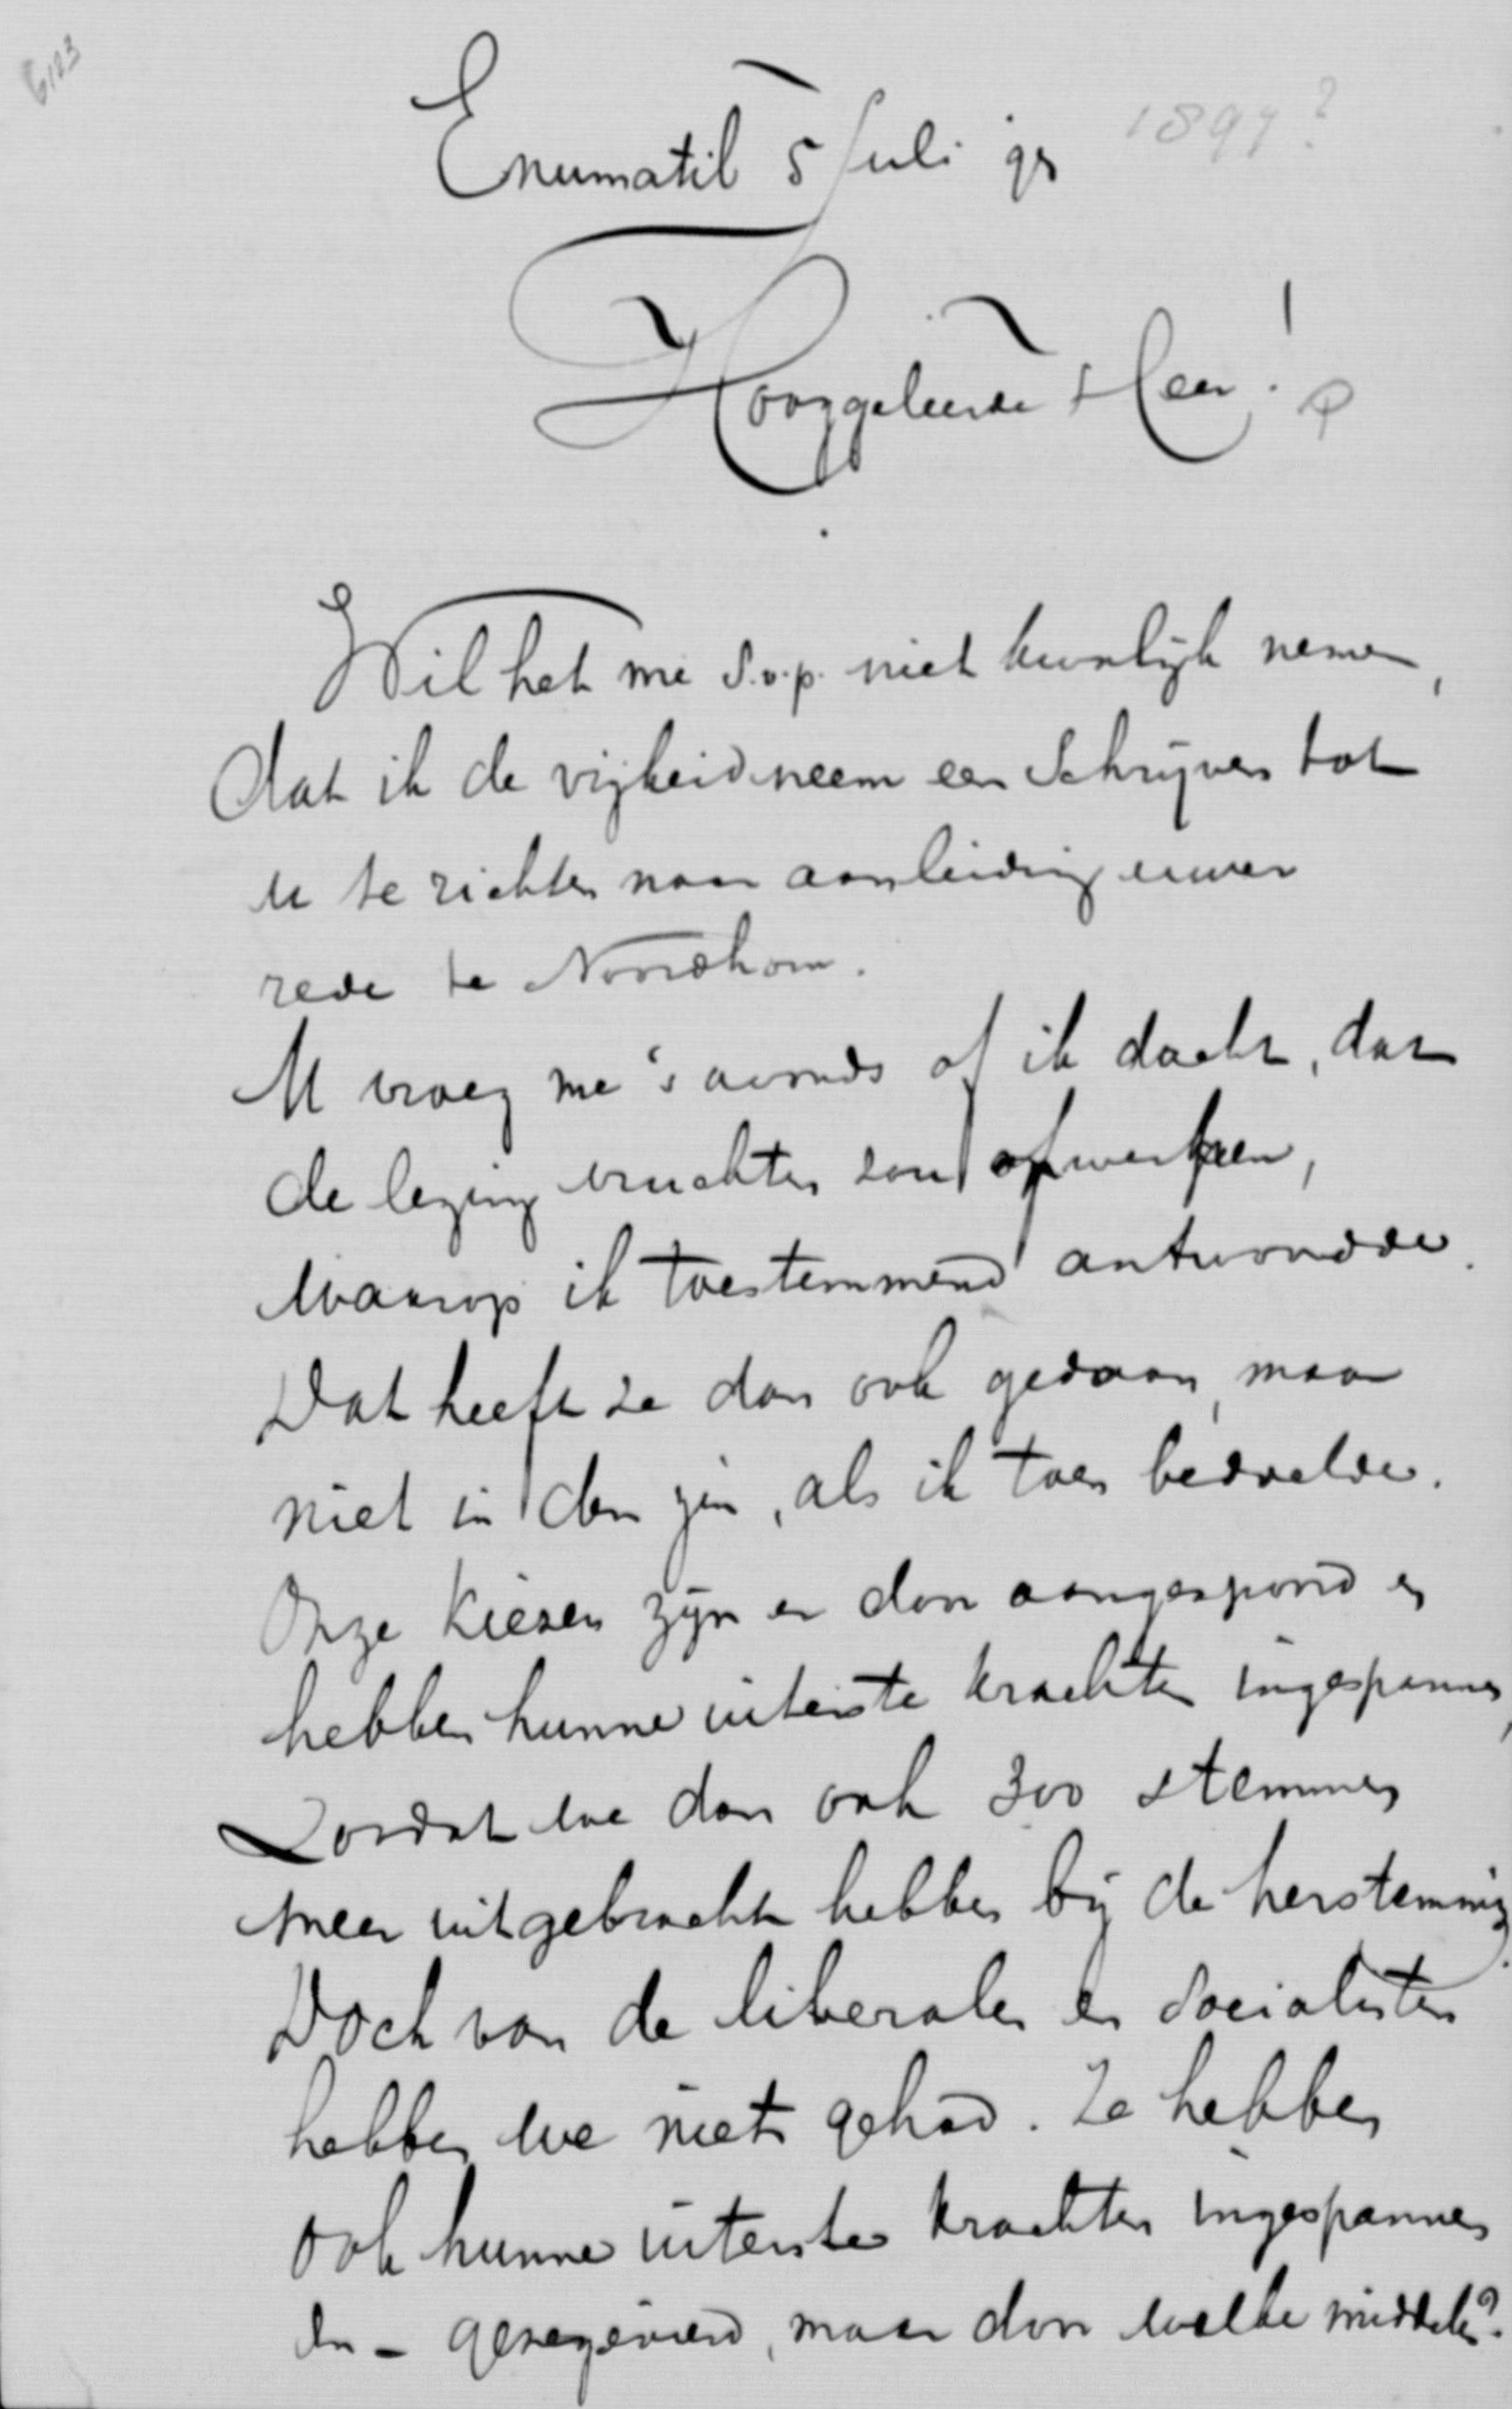 6123
Enumatil 5 Juli 97 1897?
Hooggeleerde Heer!
Wil het me s.v.p. niet kwalijk nemen,
dat ik de vrijheid neem een schrijven tot
u te richten naar aanleiding uwer
rede te Noordhorn.
U vroeg me 's avonds of ik dacht, dat
de lezing vruchten zou afwerpen,
waarop ik toestemmend antwoordde.
Dat heeft ze dan ook gedaan, maar
niet in den zin, als ik toen bedoelde.
Onze kiezers zijn er door aangespoord en
hebben hunne uiterste krachten ingespannen,
zoodat we dan ook 300 stemmen
meer uitgebracht hebben bij de herstemming.
Doch van de liberalen en socialisten
hebben we niets gehad. Ze hebben
ook hunne uiterste krachten ingespannen
en - gezegevierd, maar door welke middelen?